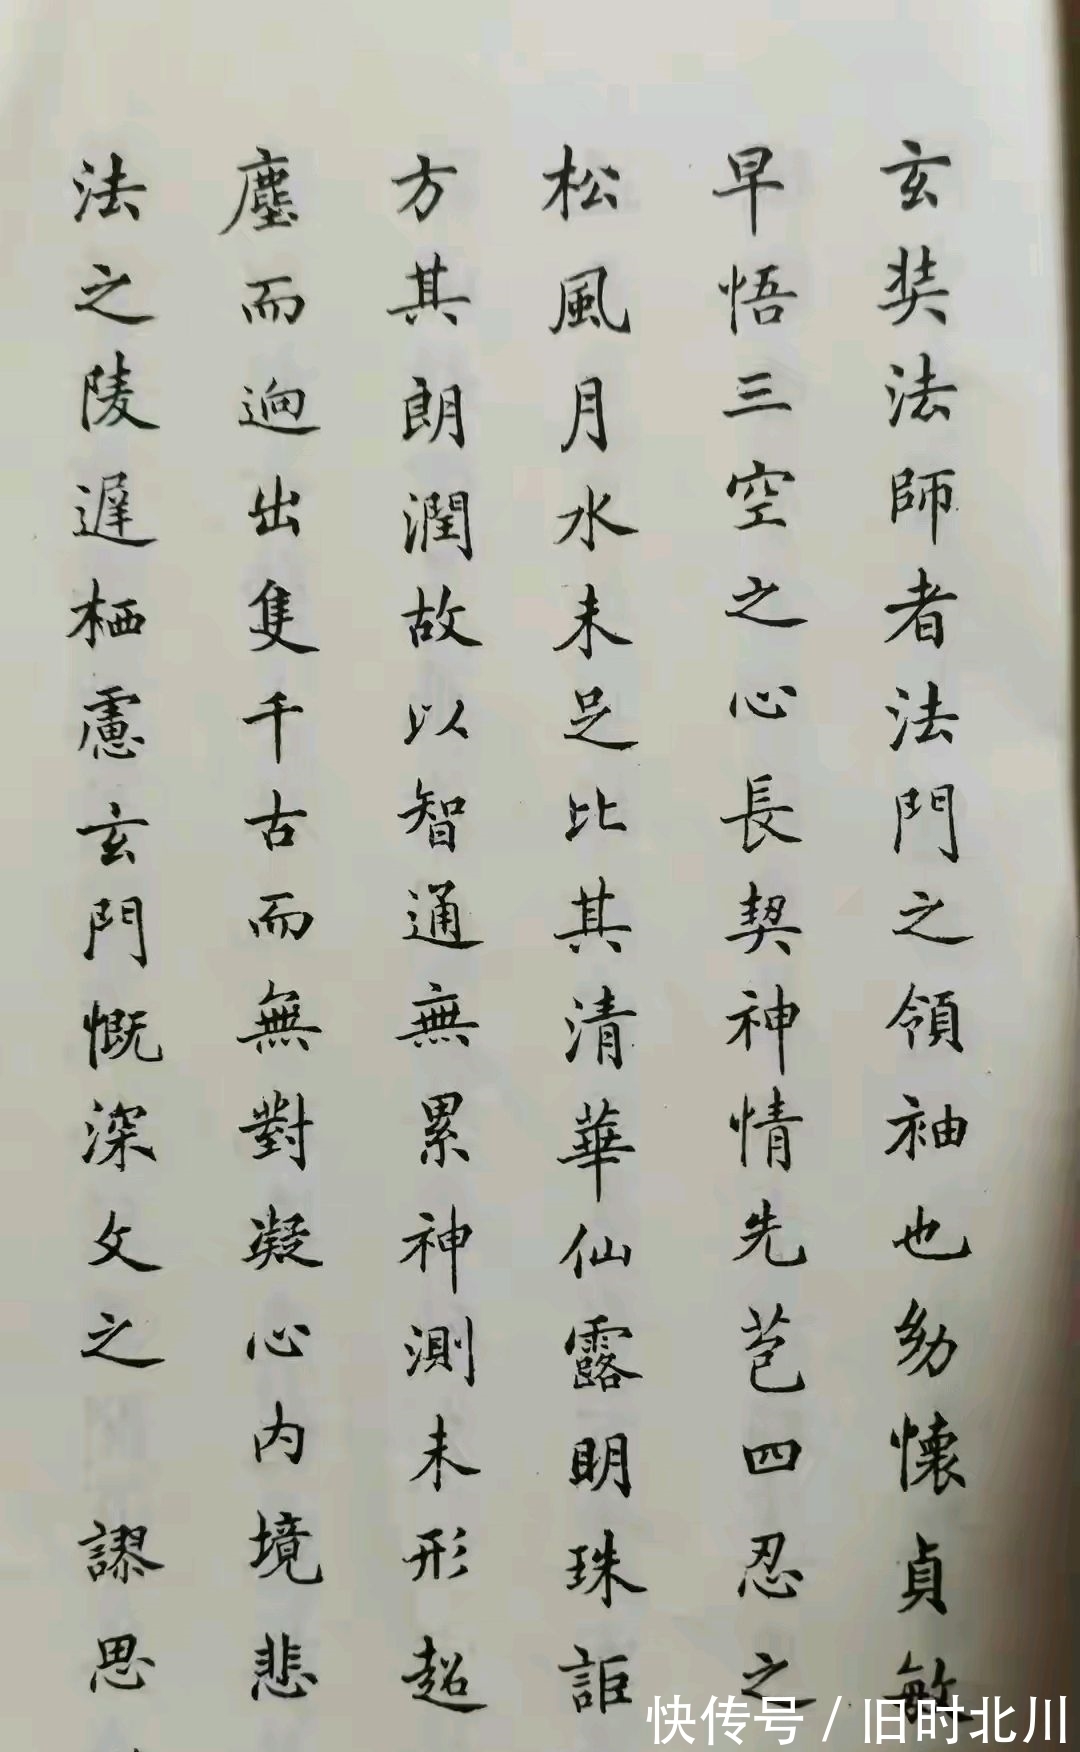 玄奘法師者法門之領袖也幼懷貞敏
早悟三空之心長契神情先苞四忍之
松風月水未足比其清華仙露明珠詎
方其朗潤故以智通無累神測未形超
塵而迥出隻千古而無對凝心内境悲
法之陵遲栖慮玄門慨深文之 謬思
快传号 / 旧时北川